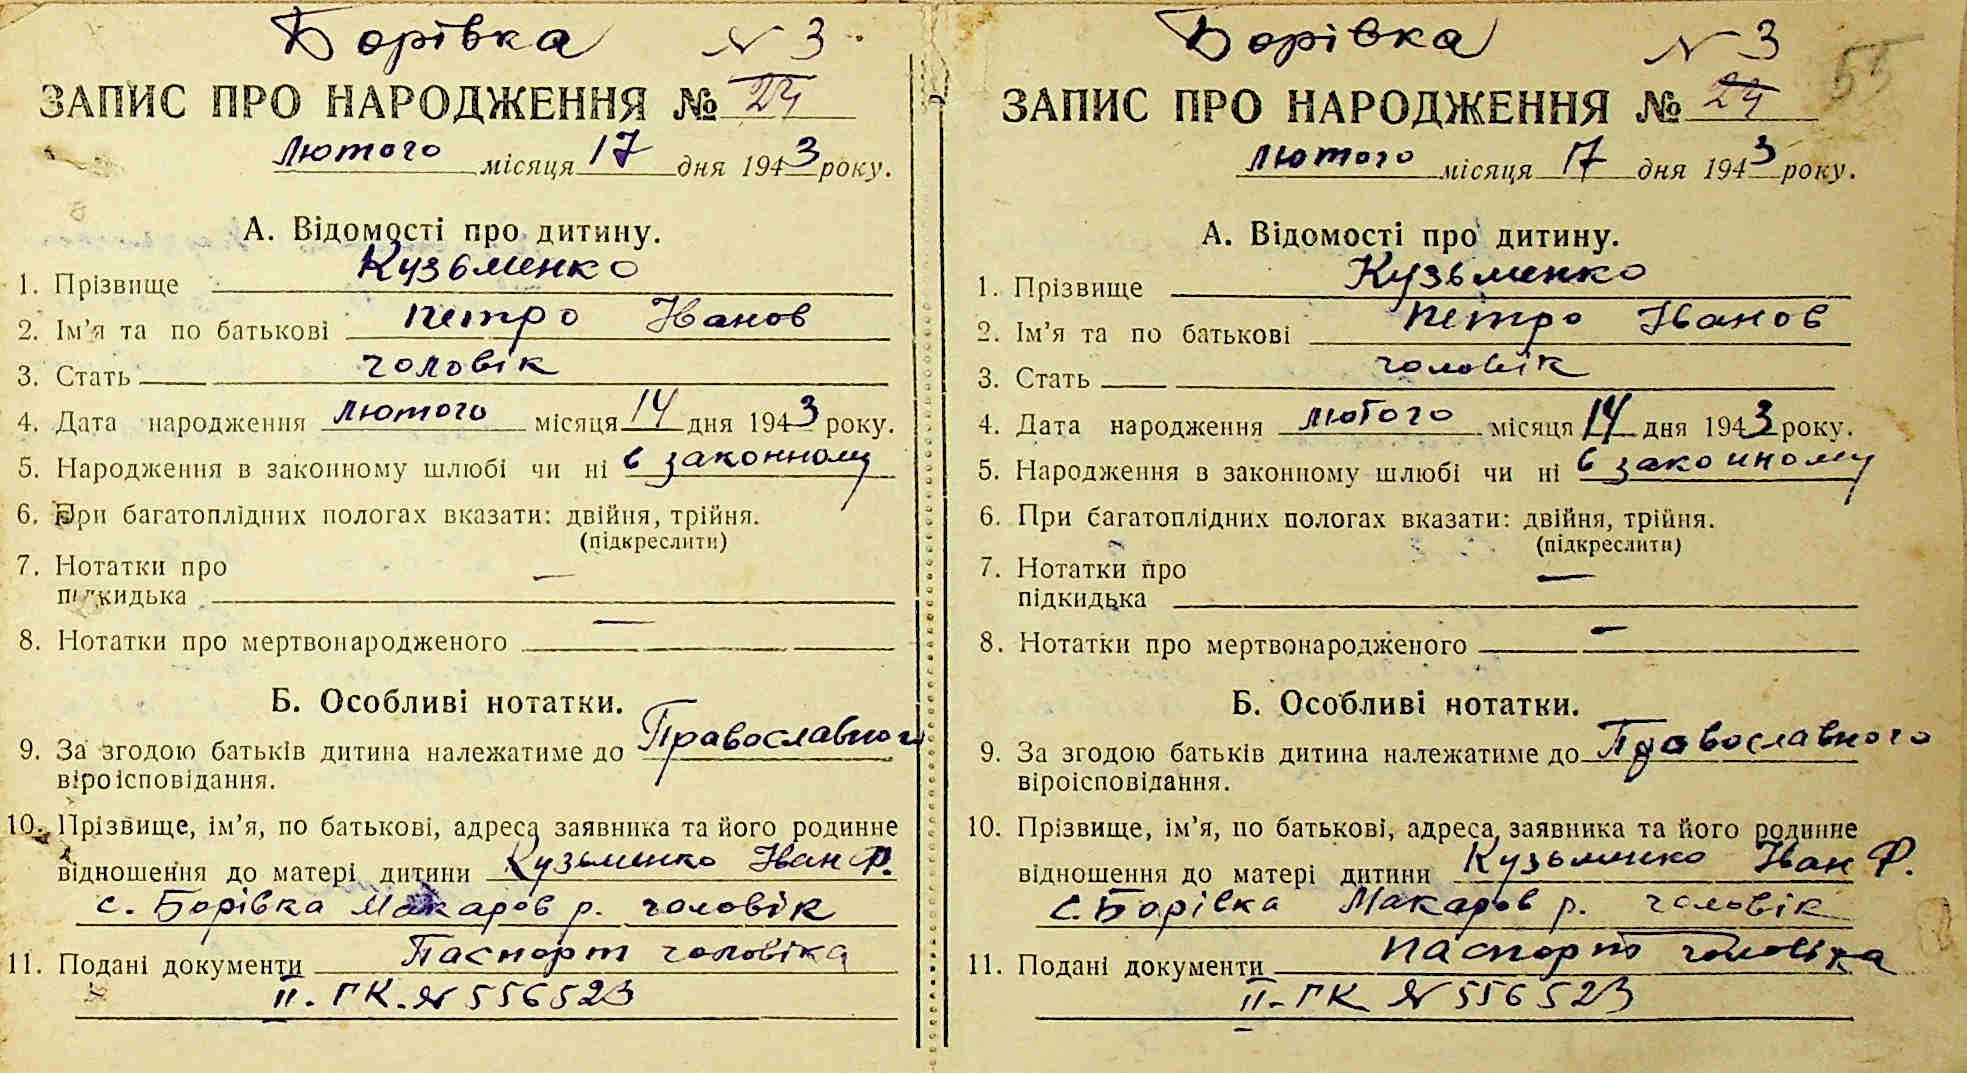 Борівка № 3
ЗАПИС ПРО НАРОДЖЕННЯ № 24
Лютого місяця 17 дня 1943 року.
А. Відомості про дитину.
1. Прізвище Кузьменко
2. Ім'я та по батькові Петро Іванов
3. Стать чоловік
4. Дата народження Лютого місяця 14 дня 1943 року.
5. Народження в законному шлюбі чи ні в законному
6. При багатоплідних пологах вказати: двійня, трійня.
(підкреслити)
7. Нотатки про —
підкидька
8. Нотатки про мертвонародженого —
Б. Особливі нотатки.
9. За згодою батьків дитина належатиме до Православног
віроісповідання.
10. Прізвище, ім'я, по батькові, адреса заявника та його родинне
відношення до матері дитини Кузьменко Іван Ф.
с. Борівка Макаров р. чоловік
11. Подані документи Паспорт чоловіка
II-ГК. № 556523
Борівка № 3
55
ЗАПИС ПРО НАРОДЖЕННЯ № 24
Лютого місяця 17 дня 1943 року.
А. Відомості про дитину.
1. Прізвище Кузьменко
2. Ім'я та по батькові Петро Іванов
3. Стать чоловік
4. Дата народження лютого місяця 14 дня 1943 року.
5. Народження в законному шлюбі чи ні в законному
6. При багатоплідних пологах вказати: двійня, трійня.
(підкреслити)
7. Нотатки про —
підкидька
8. Нотатки про мертвонародженого —
Б. Особливі нотатки.
9. За згодою батьків дитина належатиме до Православного
віроісповідання.
10. Прізвище, ім'я, по батькові, адреса заявника та його родинне
відношення до матері дитини Кузьменко Іван Ф.
с. Борівка Макаров р. чоловік
11. Подані документи паспорт чоловіка
II-ГК № 556523